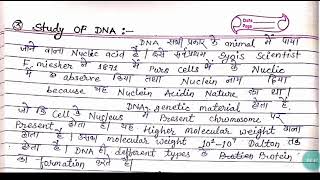 Date
Page
Study OF DNA:-
DNA सभी प्रकार के animal में पाया
जाने वाला Nucleic acid है। इसे सर्वप्रथम Swiss Scientist
F. miesher ने 1871 में Purs Cells के Nuclic
में observe किया तथा Nuclein नाम दिया
because यह Nuclein Acidin Nature का था।
DNA genetic material होता है
जो कि Cell के Nucleus में Present chromosome पर
Present होता है। यह Higher molecular weight वाला
होता है। इसका molecular weight 10⁶-10⁹ Dalton तक
होता है। DNA ही different types के Protien Protein
का formation करते हैं।